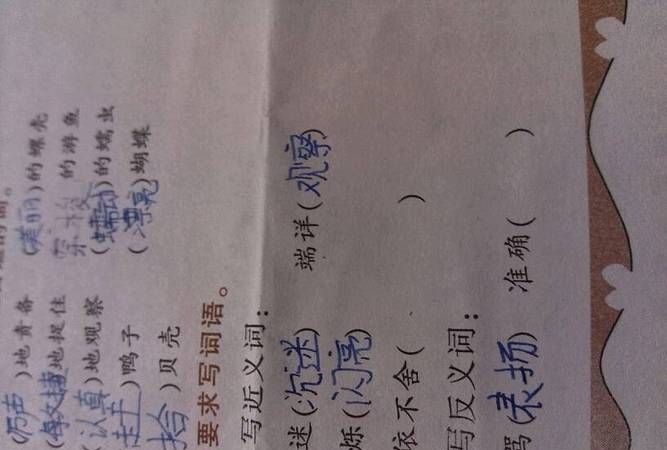 的词。
(厉声)地责备 (美丽)的螺壳
地捉住 的游鱼
(认真)地观察 (蠕动)的蠕虫
)鸭子 (漂亮)蝴蝶
拾)贝壳
要求写词语。
写近义词：
迷(沉迷) 端详(观察)
烁(闪亮)
依不舍( )
写反义词：
骂(表扬) 准确( )